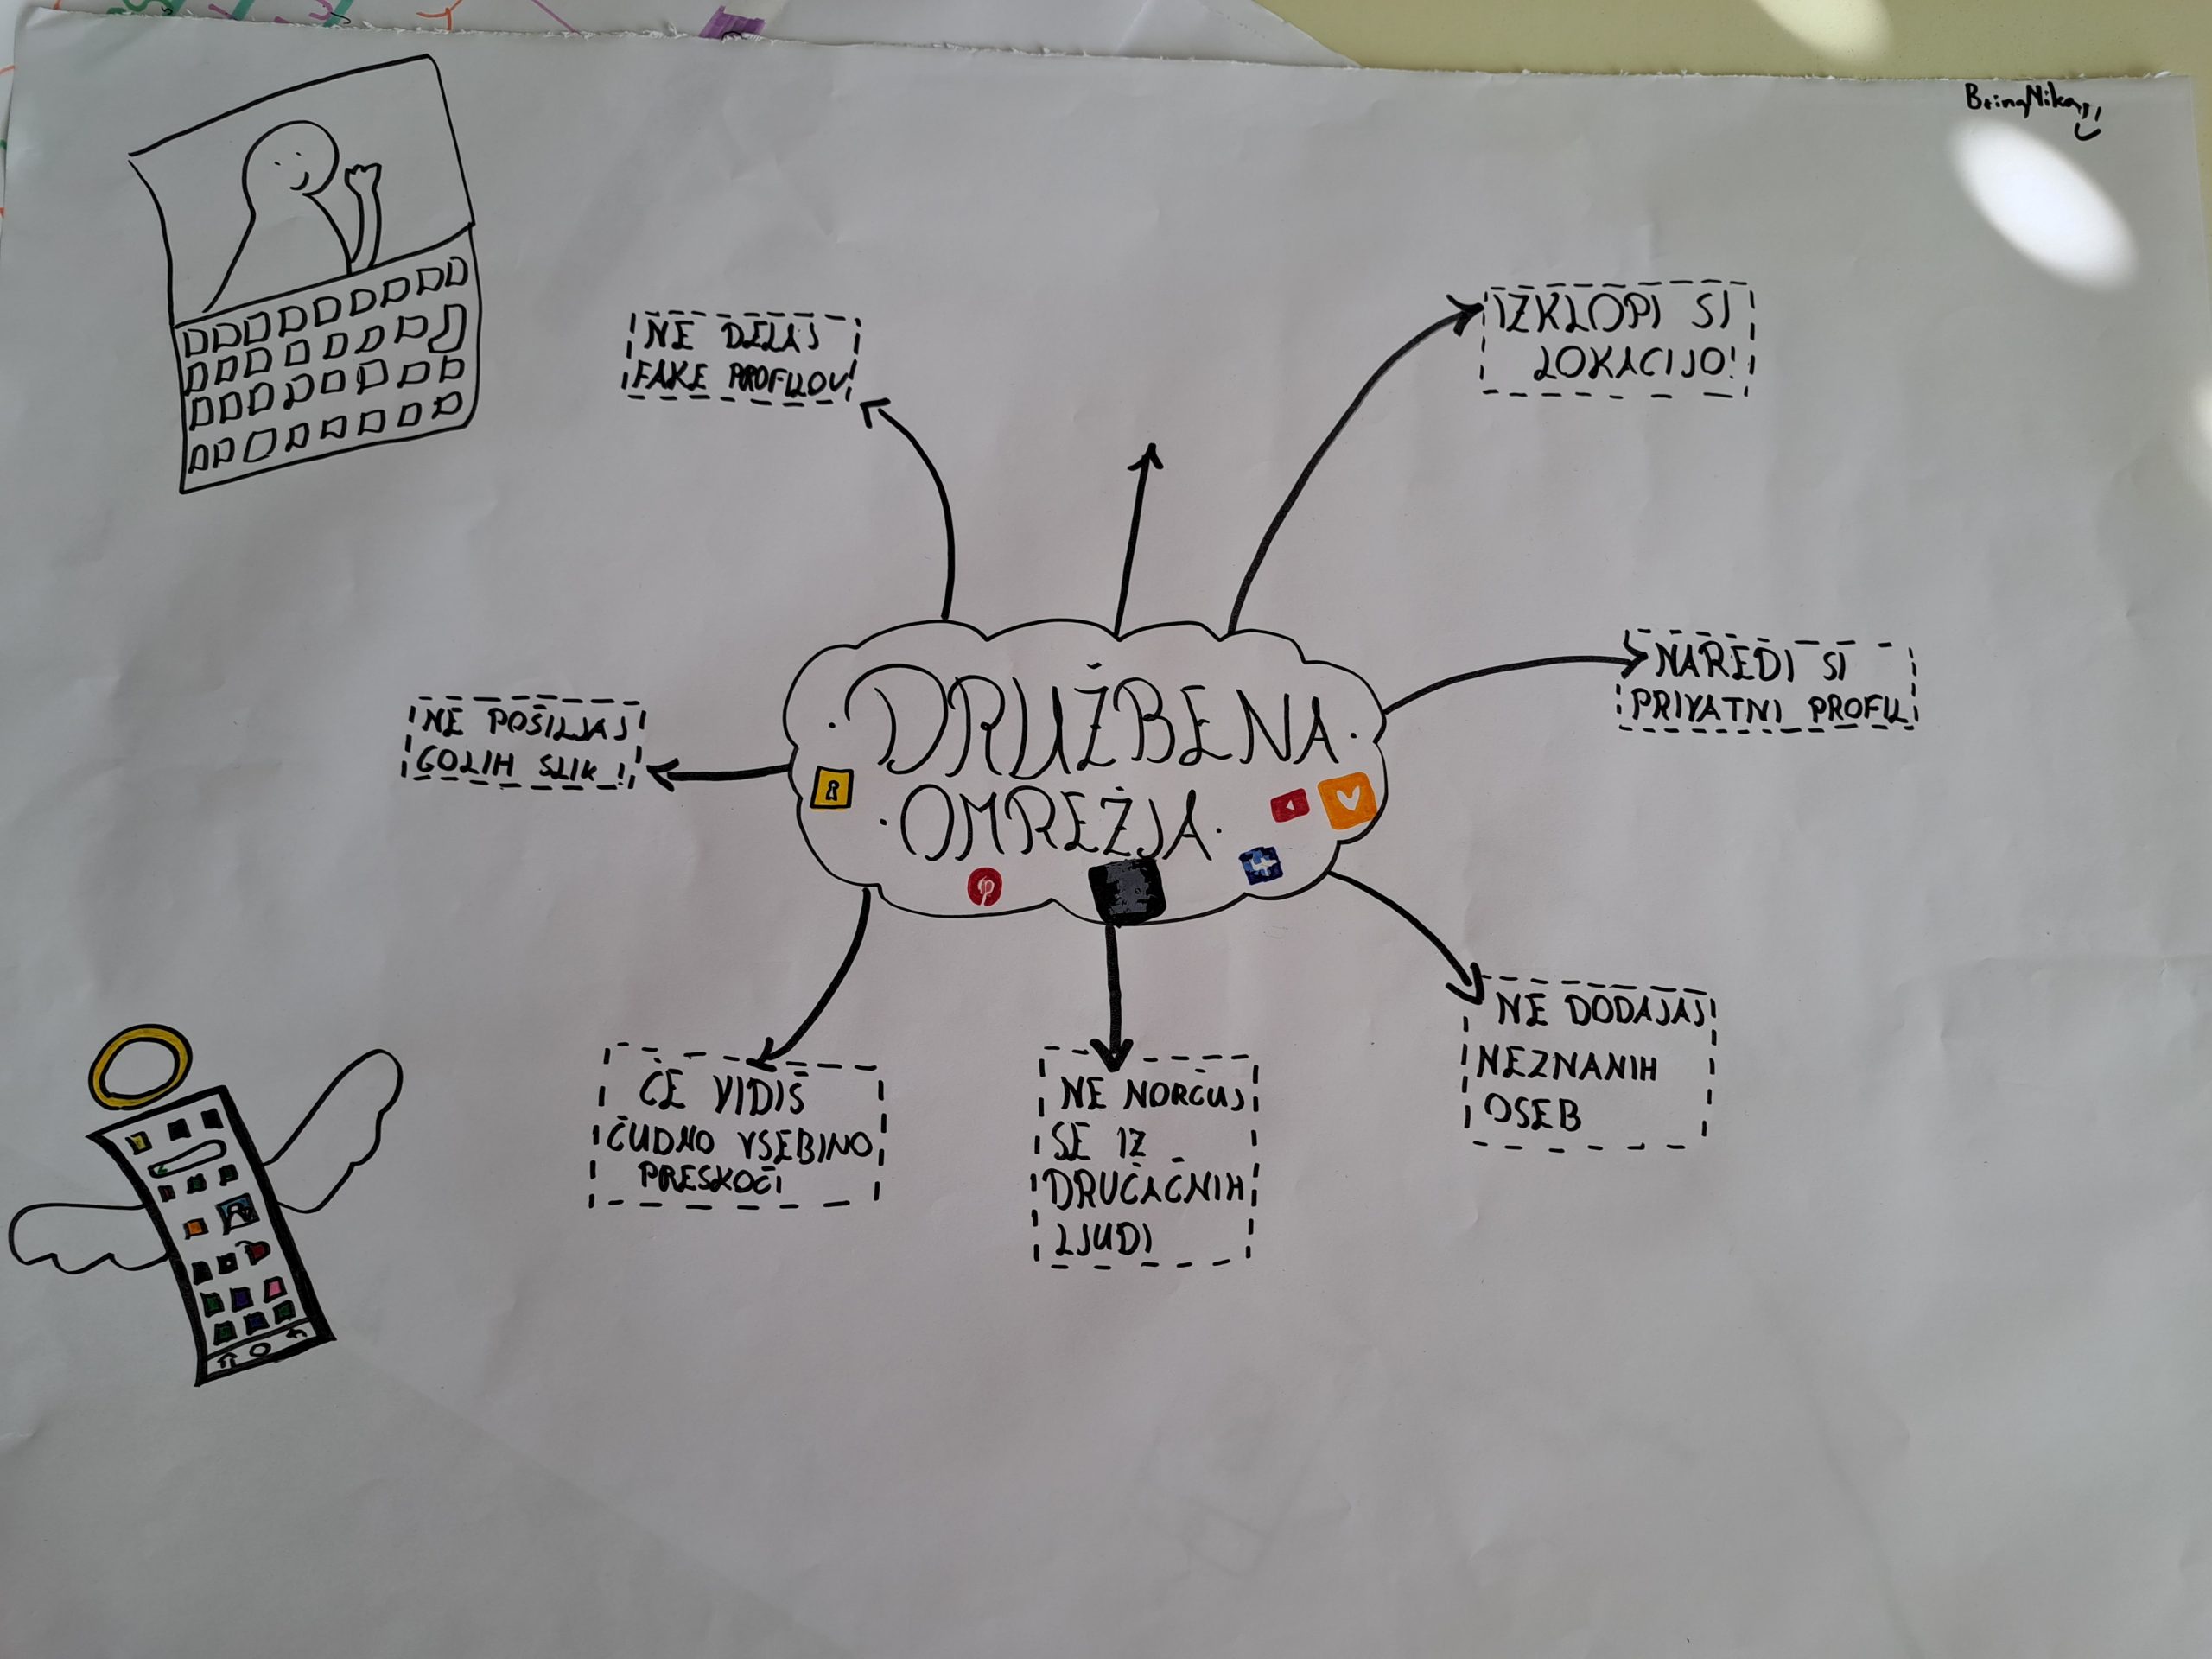 NE DELAJ
FAKE PROFILOV!
IZKLOPI SI
LOKACIJO!
NAREDI SI
PRIVATNI PROFIL
NE POŠILJAJ
GOLIH SLIK !
DRUŽBENA
OMREŽJA
ČE VIDIŠ
ČUDNO VSEBINO
PRESKOČI
NE NORČUJ
SE IZ
DRUČAČNIH
LJUDI
NE DODAJAJ
NEZNANIH
OSEB